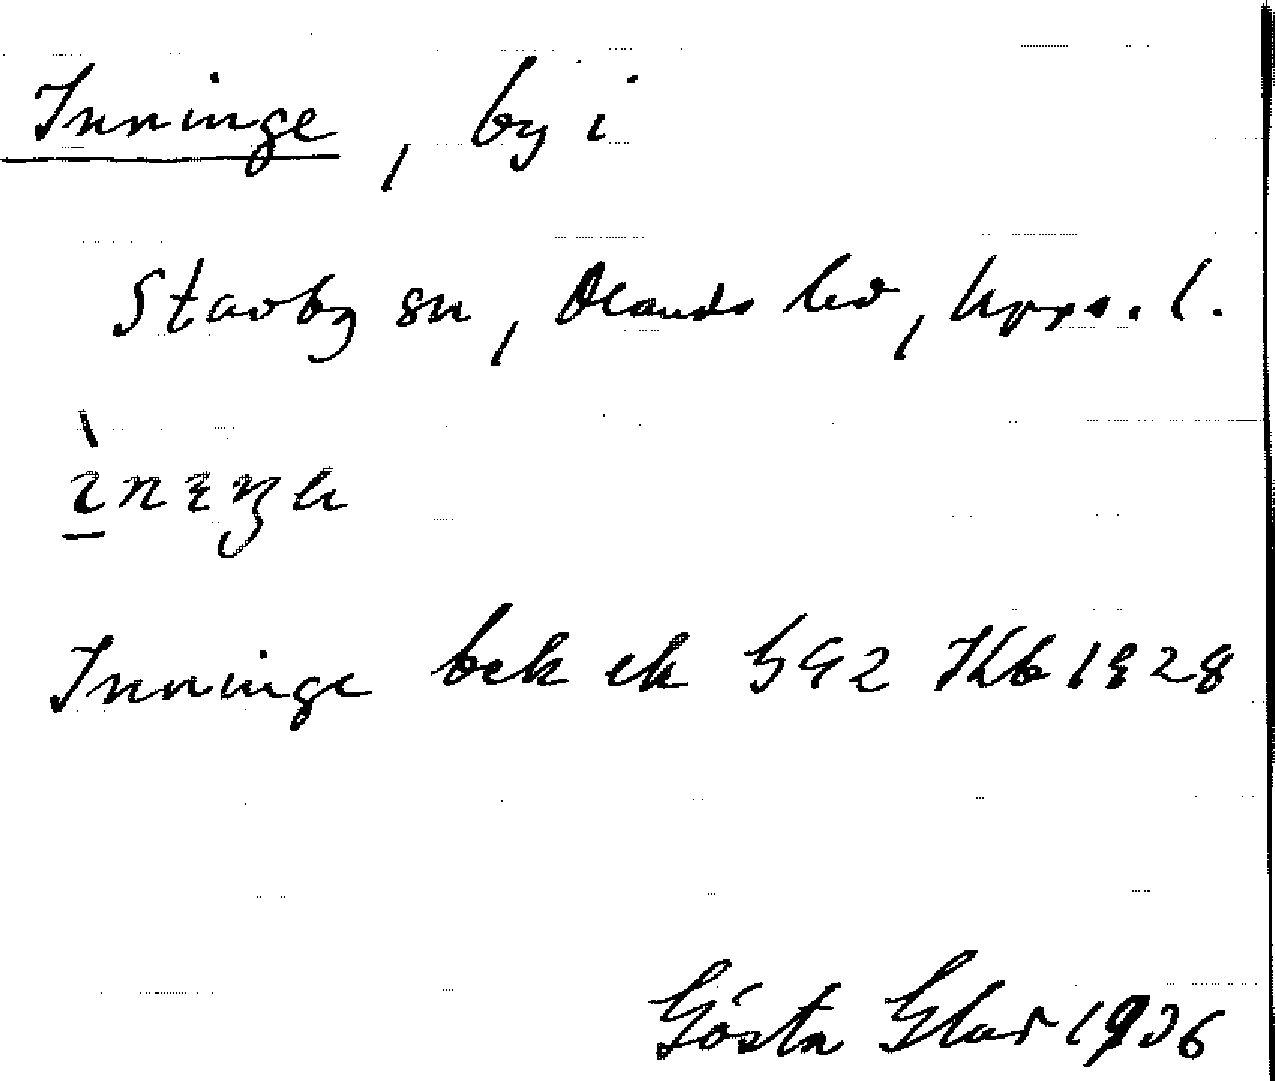 Inninge, by i
Stavby sn, Olands hd, Upps. l.
Inninge bek ek 592 Kb 1928
Gösta 1936